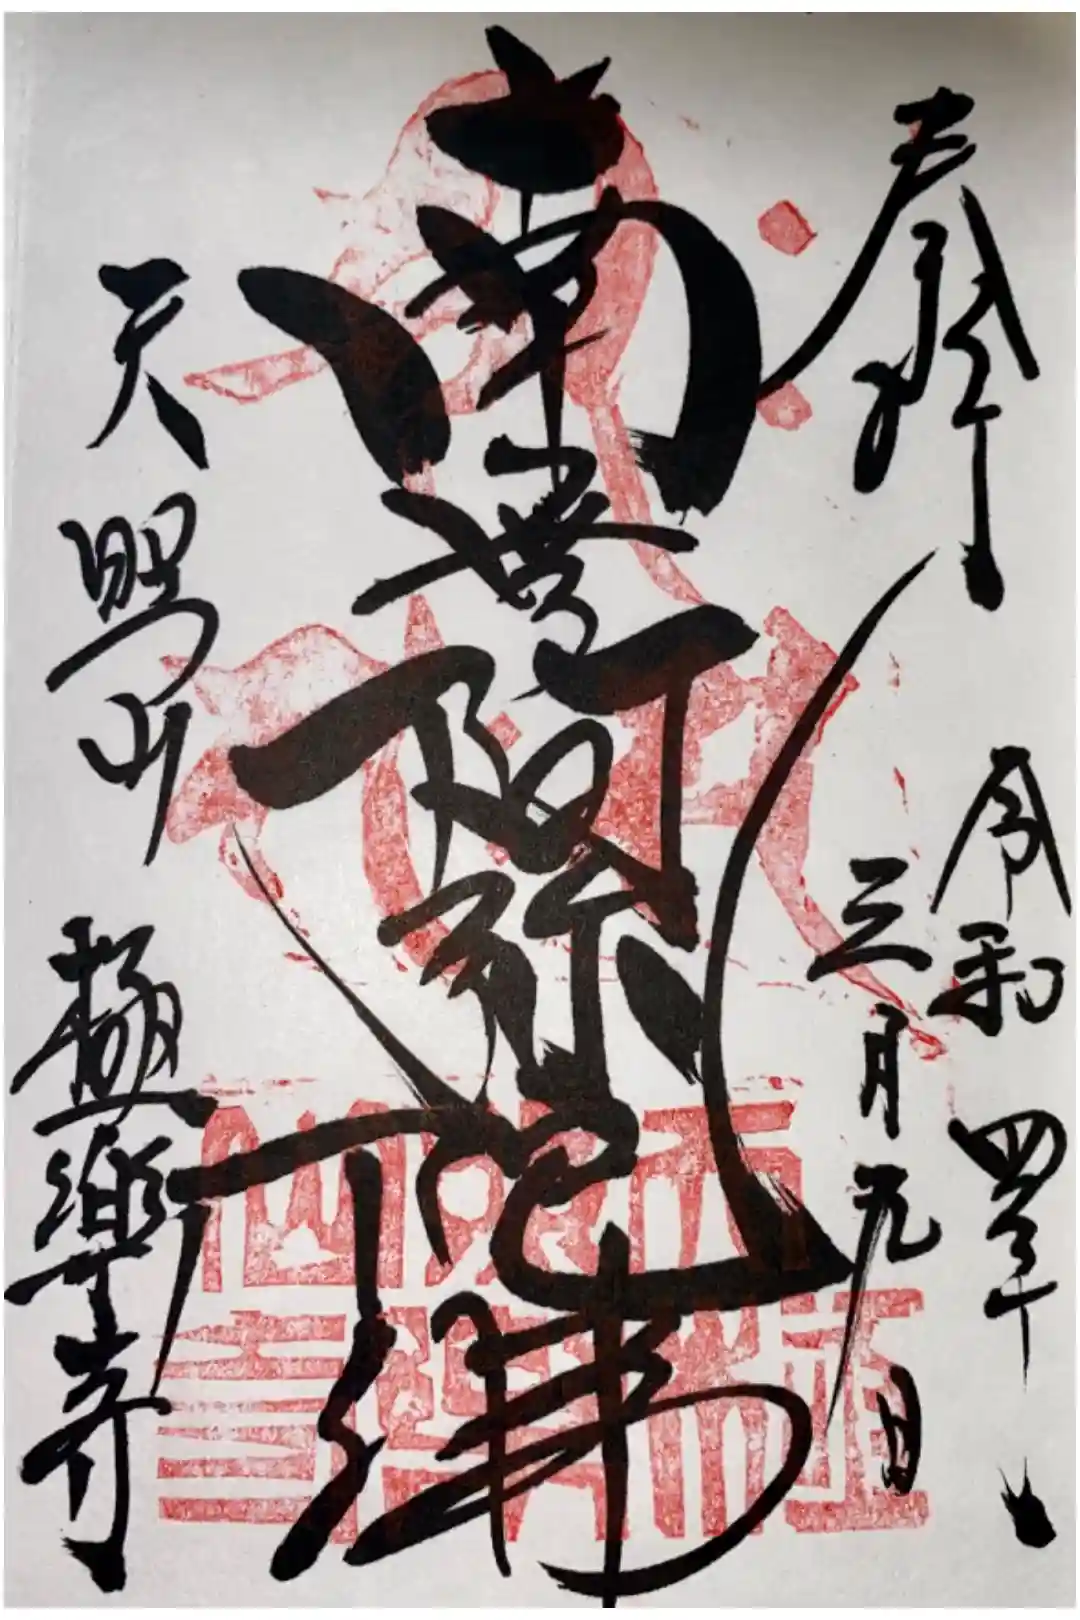 奉拝
令和四年
三月九日
南無阿弥陀佛
天照山
極樂寺